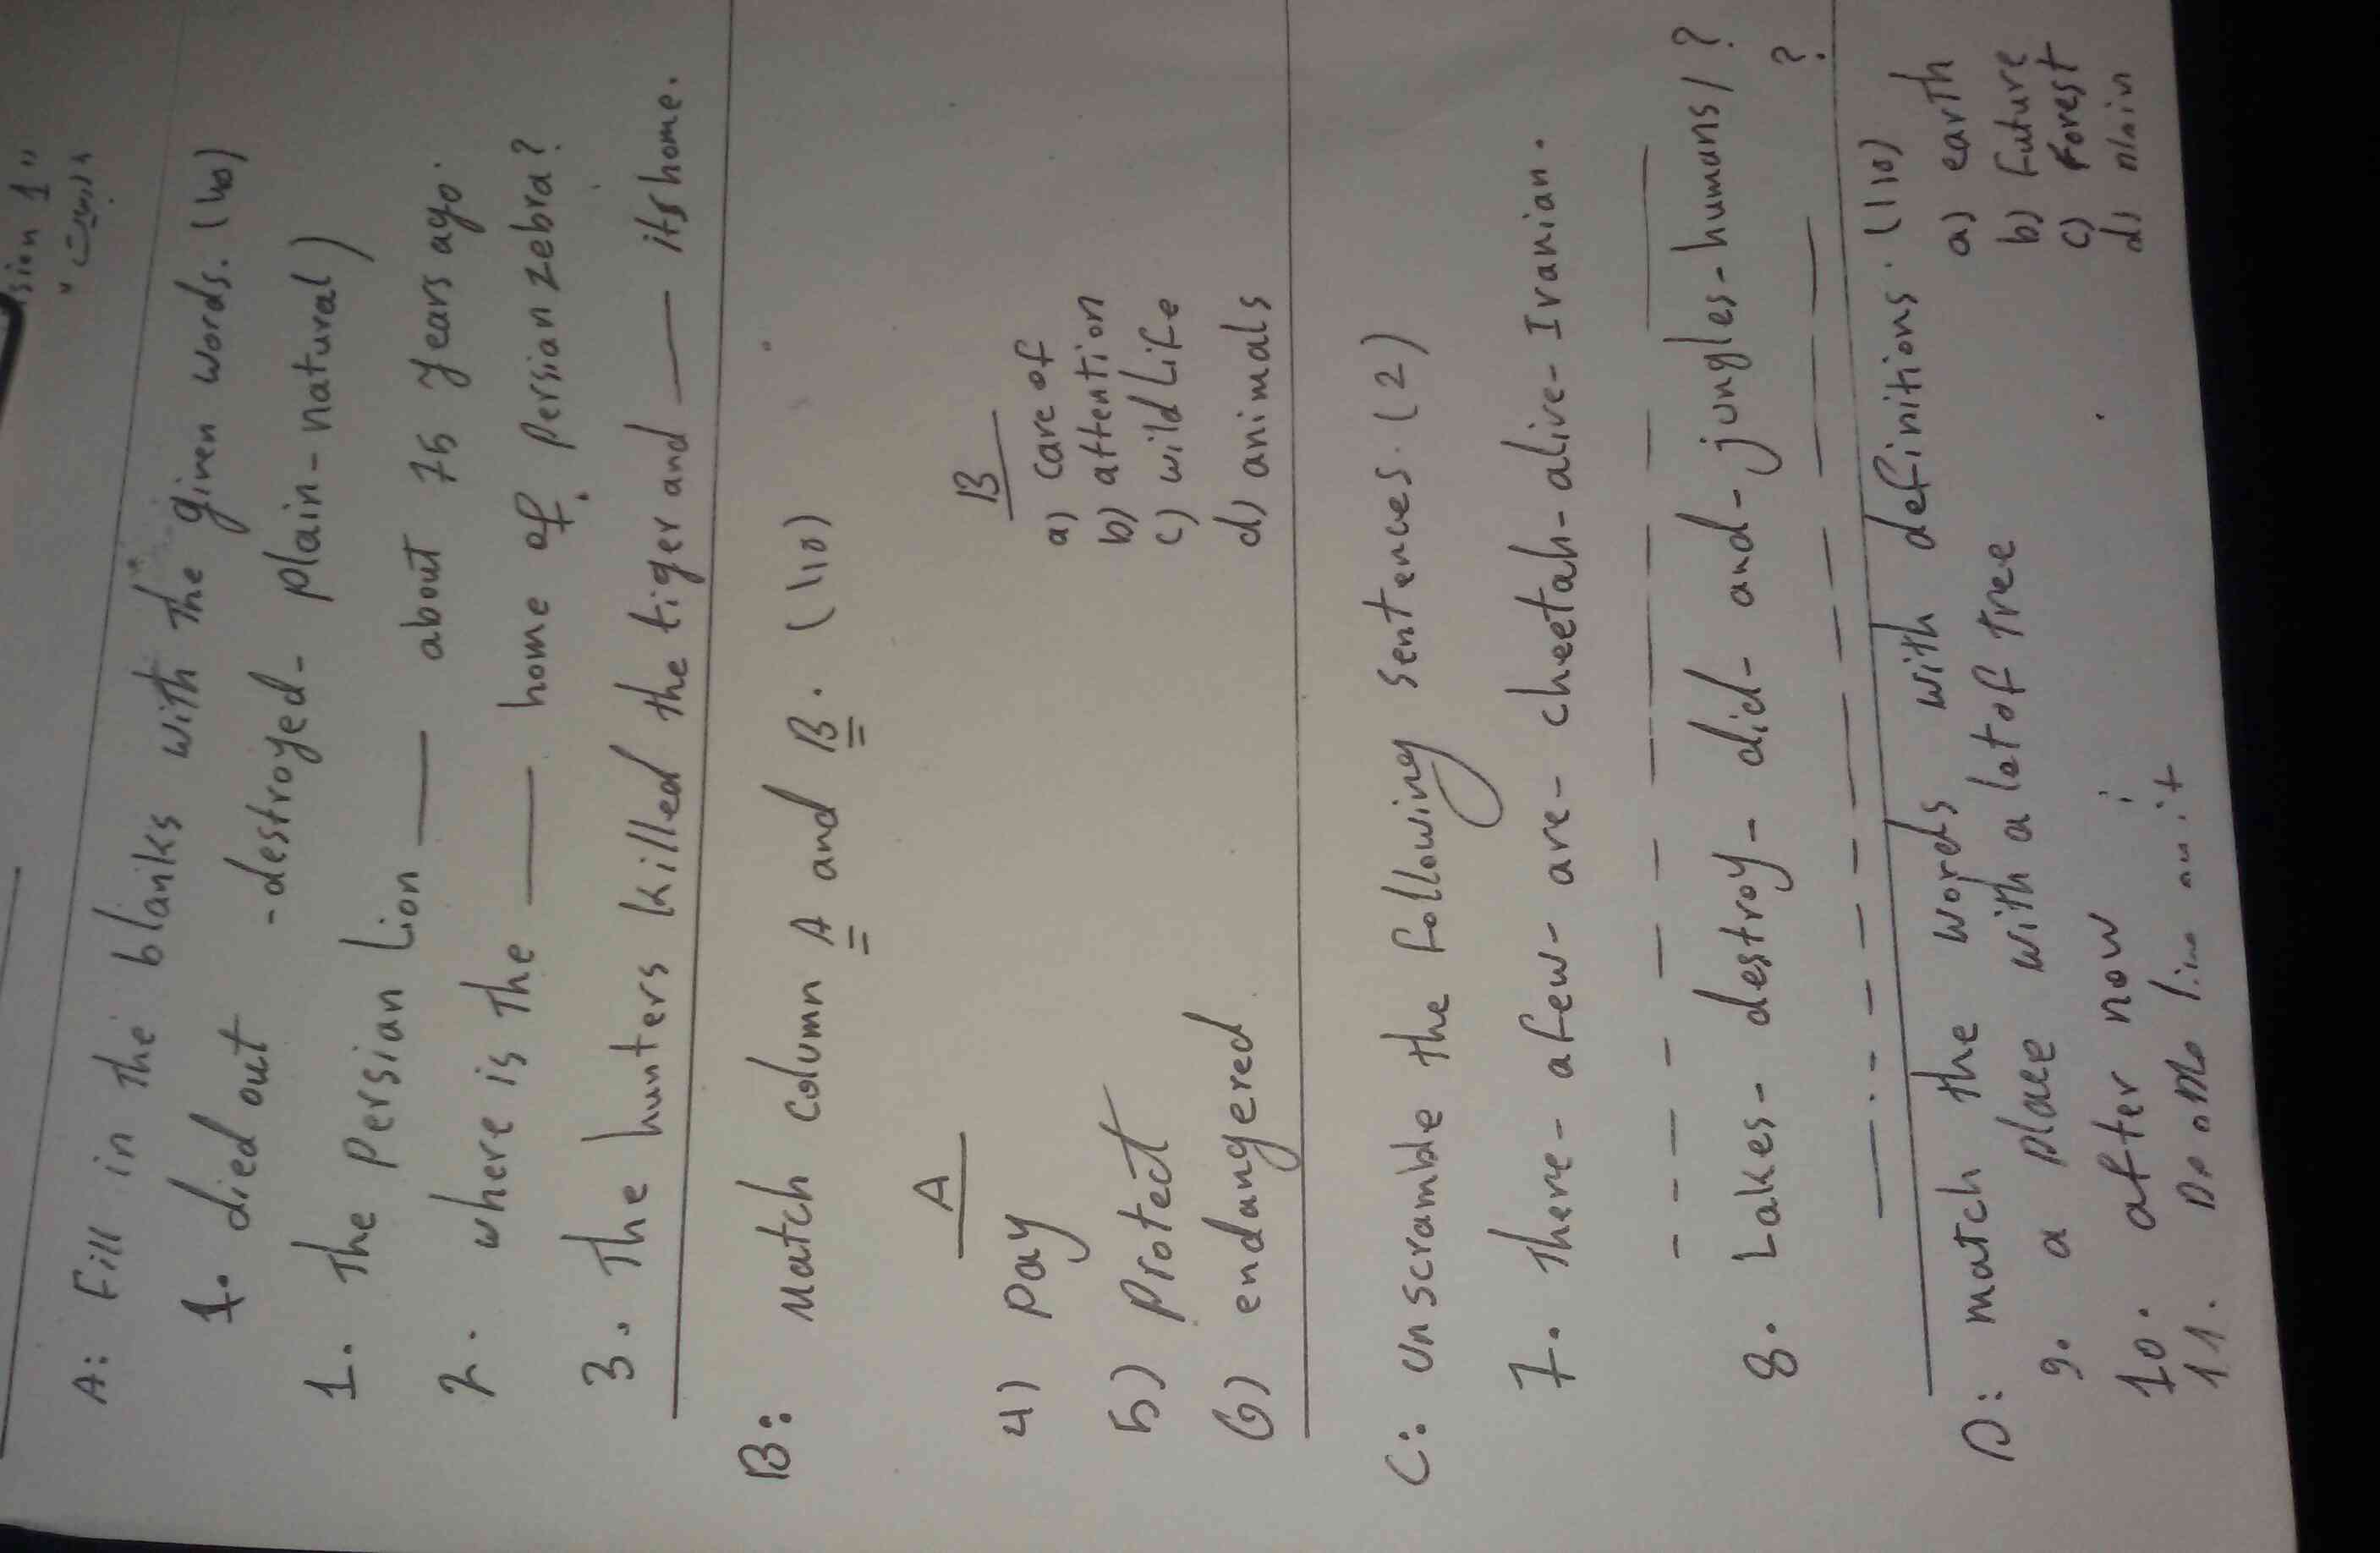 sion 1"
A: Fill in the blanks with the given words. (
1. died out -destroyed- plain-natural)
1. The Persian Lion —— about 75 years ago.
2. where is the —— home of Persian zebra?
3. The hunters killed the tiger and —— its home.
B: Match column A and B. (1/5)
A B
4) Pay a) care of
5) Protect b) attention
6) endangered c) wild Life
d) animals
C: unscramble the following sentences. (2)
7. There- a few- are- cheetah-alive-Iranian.
8. Lakes- destroy- did- and- jungles-humans/?
?
D: match the words with definitions. (1/5)
9. a place with a lot of tree a) earth
10. after now b) future
11. People live on it c) Forest
d) plain